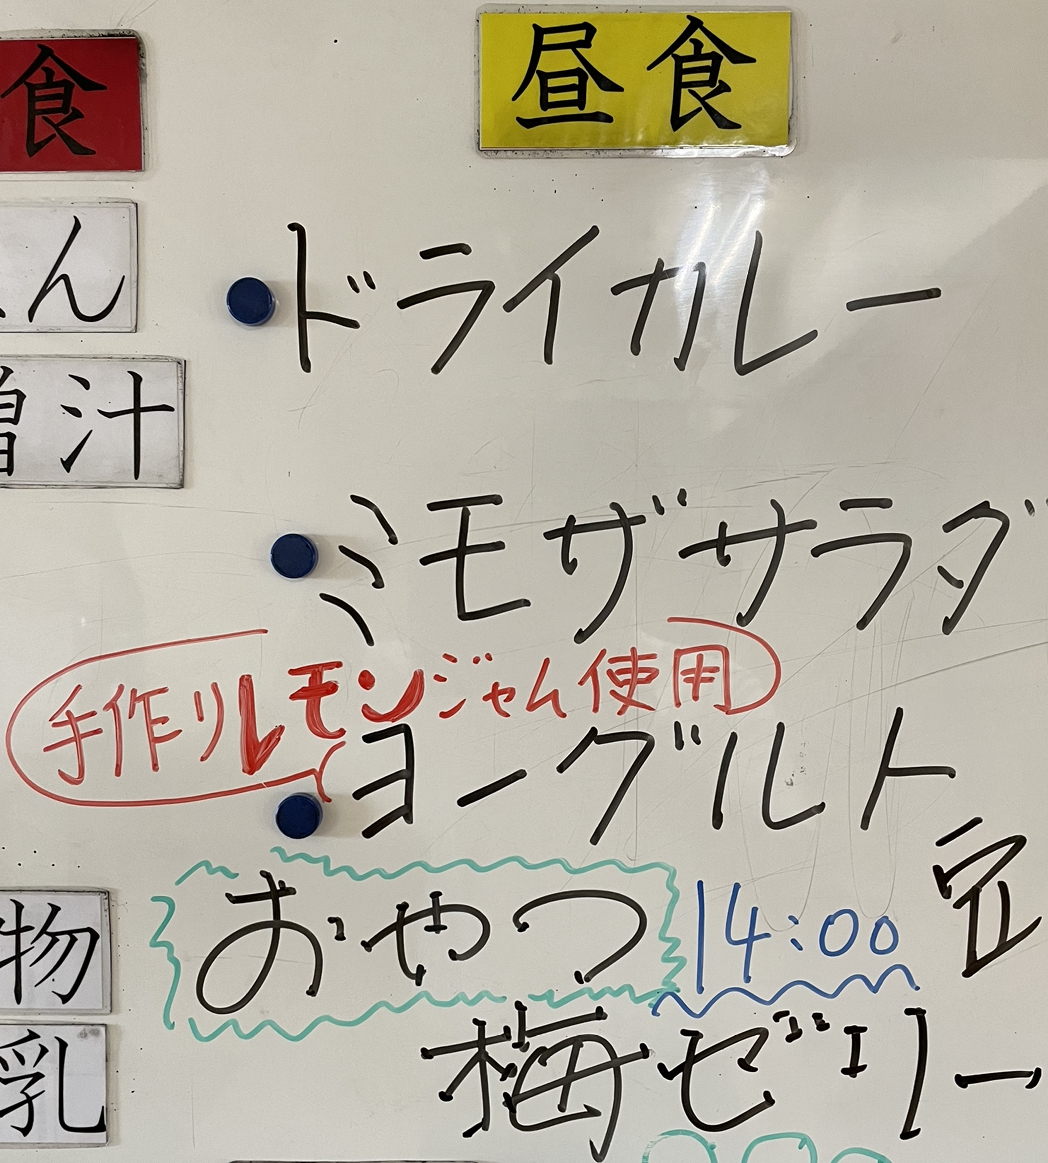 食
昼食
ん
ドライカレー
汁
ミモザサラダ
手作りレモンジャム使用
ヨーグルト
物
おやつ 14:00
乳
梅ゼリー